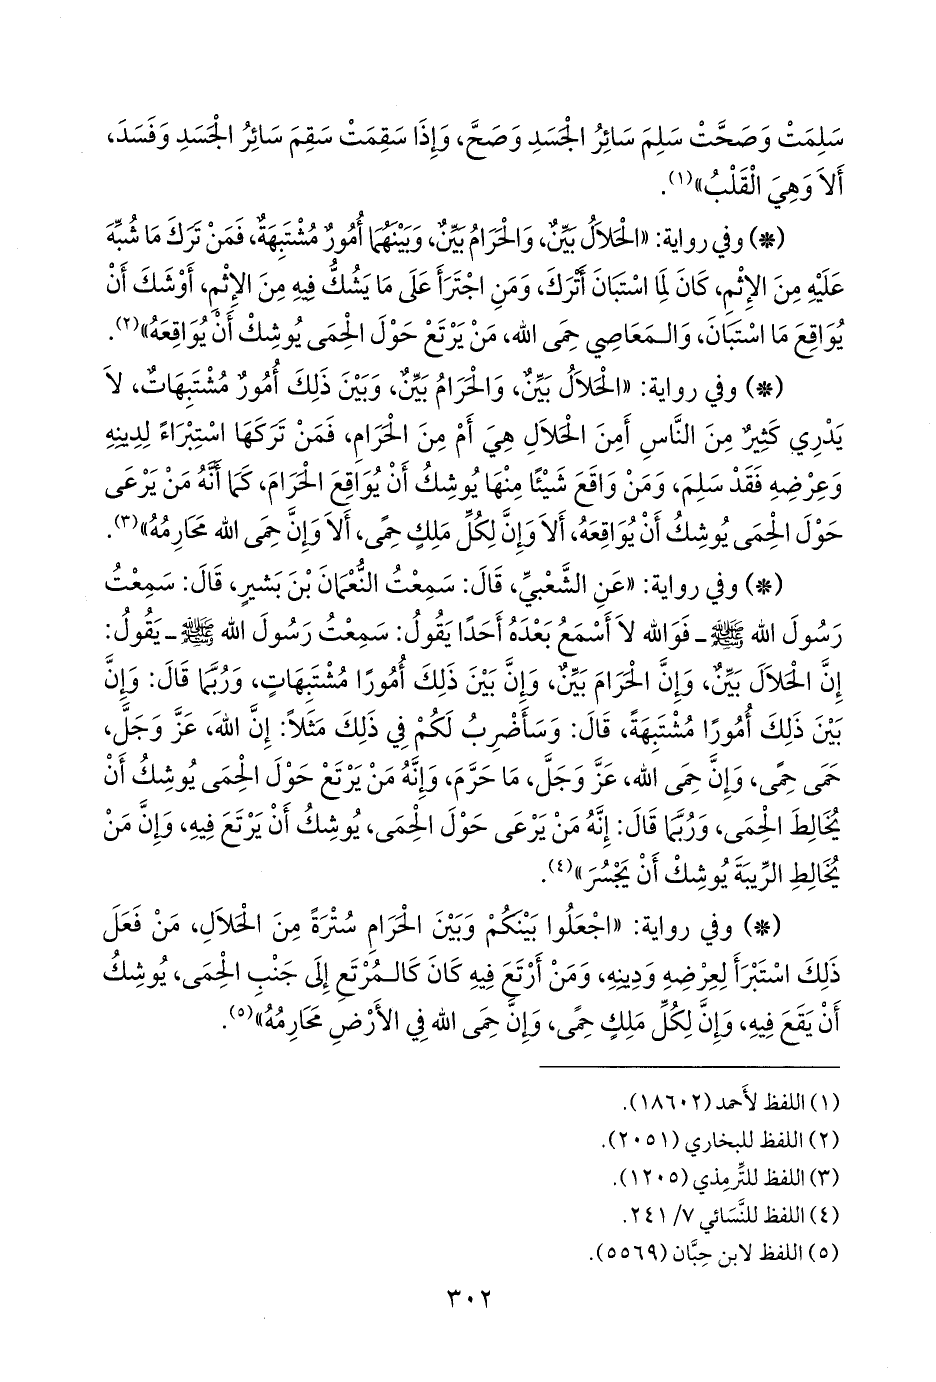 سَلِمَتْ وَصَحَّتْ سَلِمَ سَائِرُ الْجَسَدِ وَصَحَّ، وَإِذَا سَقِمَتْ سَقِمَ سَائِرُ الْجَسَدِ وَفَسَدَ،
أَلاَ وَهِيَ الْقَلْبُ»(١).
(*) وفي رواية: «الْحَلاَلُ بَيِّنٌ، وَالْحَرَامُ بَيِّنٌ، وَبَيْنَهُمَا أُمُورٌ مُشْتَبِهَةٌ، فَمَنْ تَرَكَ مَا شُبِّهَ
عَلَيْهِ مِنَ الإِثْمِ، كَانَ لِمَا اسْتَبَانَ أَتْرَكَ، وَمَنِ اجْتَرَأَ عَلَى مَا يَشُكُّ فِيهِ مِنَ الإِثْمِ، أَوْشَكَ أَنْ
يُوَاقِعَ مَا اسْتَبَانَ، وَالْمَعَاصِي حِمَى الله، مَنْ يَرْتَعْ حَوْلَ الْحِمَى يُوشِكْ أَنْ يُوَاقِعَهُ»(٢).
(*) وفي رواية: «الْحَلاَلُ بَيِّنٌ، وَالْحَرَامُ بَيِّنٌ، وَبَيْنَ ذَلِكَ أُمُورٌ مُشْتَبِهَاتٌ، لاَ
يَدْرِي كَثِيرٌ مِنَ النَّاسِ أَمِنَ الْحَلاَلِ هِيَ أَمْ مِنَ الْحَرَامِ، فَمَنْ تَرَكَهَا اسْتِبْرَاءً لِدِينِهِ
وَعِرْضِهِ فَقَدْ سَلِمَ، وَمَنْ وَاقَعَ شَيْئًا مِنْهَا يُوشِكُ أَنْ يُوَاقِعَ الْحَرَامَ، كَمَا أَنَّهُ مَنْ يَرْعَى
حَوْلَ الْحِمَى يُوشِكُ أَنْ يُوَاقِعَهُ، أَلاَ وَإِنَّ لِكُلِّ مَلِكٍ حِمًى، أَلاَ وَإِنَّ حِمَى الله مَحَارِمُهُ»(٣).
(*) وفي رواية: «عَنِ الشَّعْبِيِّ، قَالَ: سَمِعْتُ النُّعْمَانَ بْنَ بَشِيرٍ، قَالَ: سَمِعْتُ
رَسُولَ الله ﷺ ـ فَوَالله لاَ أَسْمَعُ بَعْدَهُ أَحَدًا يَقُولُ: سَمِعْتُ رَسُولَ الله ﷺ ـ يَقُولُ:
إِنَّ الْحَلاَلَ بَيِّنٌ، وَإِنَّ الْحَرَامَ بَيِّنٌ، وَإِنَّ بَيْنَ ذَلِكَ أُمُورًا مُشْتَبِهَاتٍ، وَرُبَّمَا قَالَ: وَإِنَّ
بَيْنَ ذَلِكَ أُمُورًا مُشْتَبِهَةً، قَالَ: وَسَأَضْرِبُ لَكُمْ فِي ذَلِكَ مَثَلاً: إِنَّ اللهَ، عَزَّ وَجَلَّ،
حَمَى حِمًى، وَإِنَّ حِمَى الله، عَزَّ وَجَلَّ، مَا حَرَّمَ، وَإِنَّهُ مَنْ يَرْتَعْ حَوْلَ الْحِمَى يُوشِكُ أَنْ
يُخَالِطَ الْحِمَى، وَرُبَّمَا قَالَ: إِنَّهُ مَنْ يَرْعَى حَوْلَ الْحِمَى، يُوشِكُ أَنْ يَرْتَعَ فِيهِ، وَإِنَّ مَنْ
يُخَالِطِ الرِّيبَةَ يُوشِكْ أَنْ يَجْسُرَ»(٤).
(*) وفي رواية: «اجْعَلُوا بَيْنَكُمْ وَبَيْنَ الْحَرَامِ سُتْرَةً مِنَ الْحَلاَلِ، مَنْ فَعَلَ
ذَلِكَ اسْتَبْرَأَ لِعِرْضِهِ وَدِينِهِ، وَمَنْ أَرْتَعَ فِيهِ كَانَ كَالْمُرْتَعِ إِلَى جَنْبِ الْحِمَى، يُوشِكُ
أَنْ يَقَعَ فِيهِ، وَإِنَّ لِكُلِّ مَلِكٍ حِمًى، وَإِنَّ حِمَى الله فِي الأَرْضِ مَحَارِمُهُ»(٥).
(١) اللفظ لأحمد (١٨٦٠٢).
(٢) اللفظ للبخاري (٢٠٥١).
(٣) اللفظ للتِّرمِذي (١٢٠٥).
(٤) اللفظ للنَّسَائي ٧/ ٢٤١.
(٥) اللفظ لابن حِبَّان (٥٥٦٩).
٣٠٢